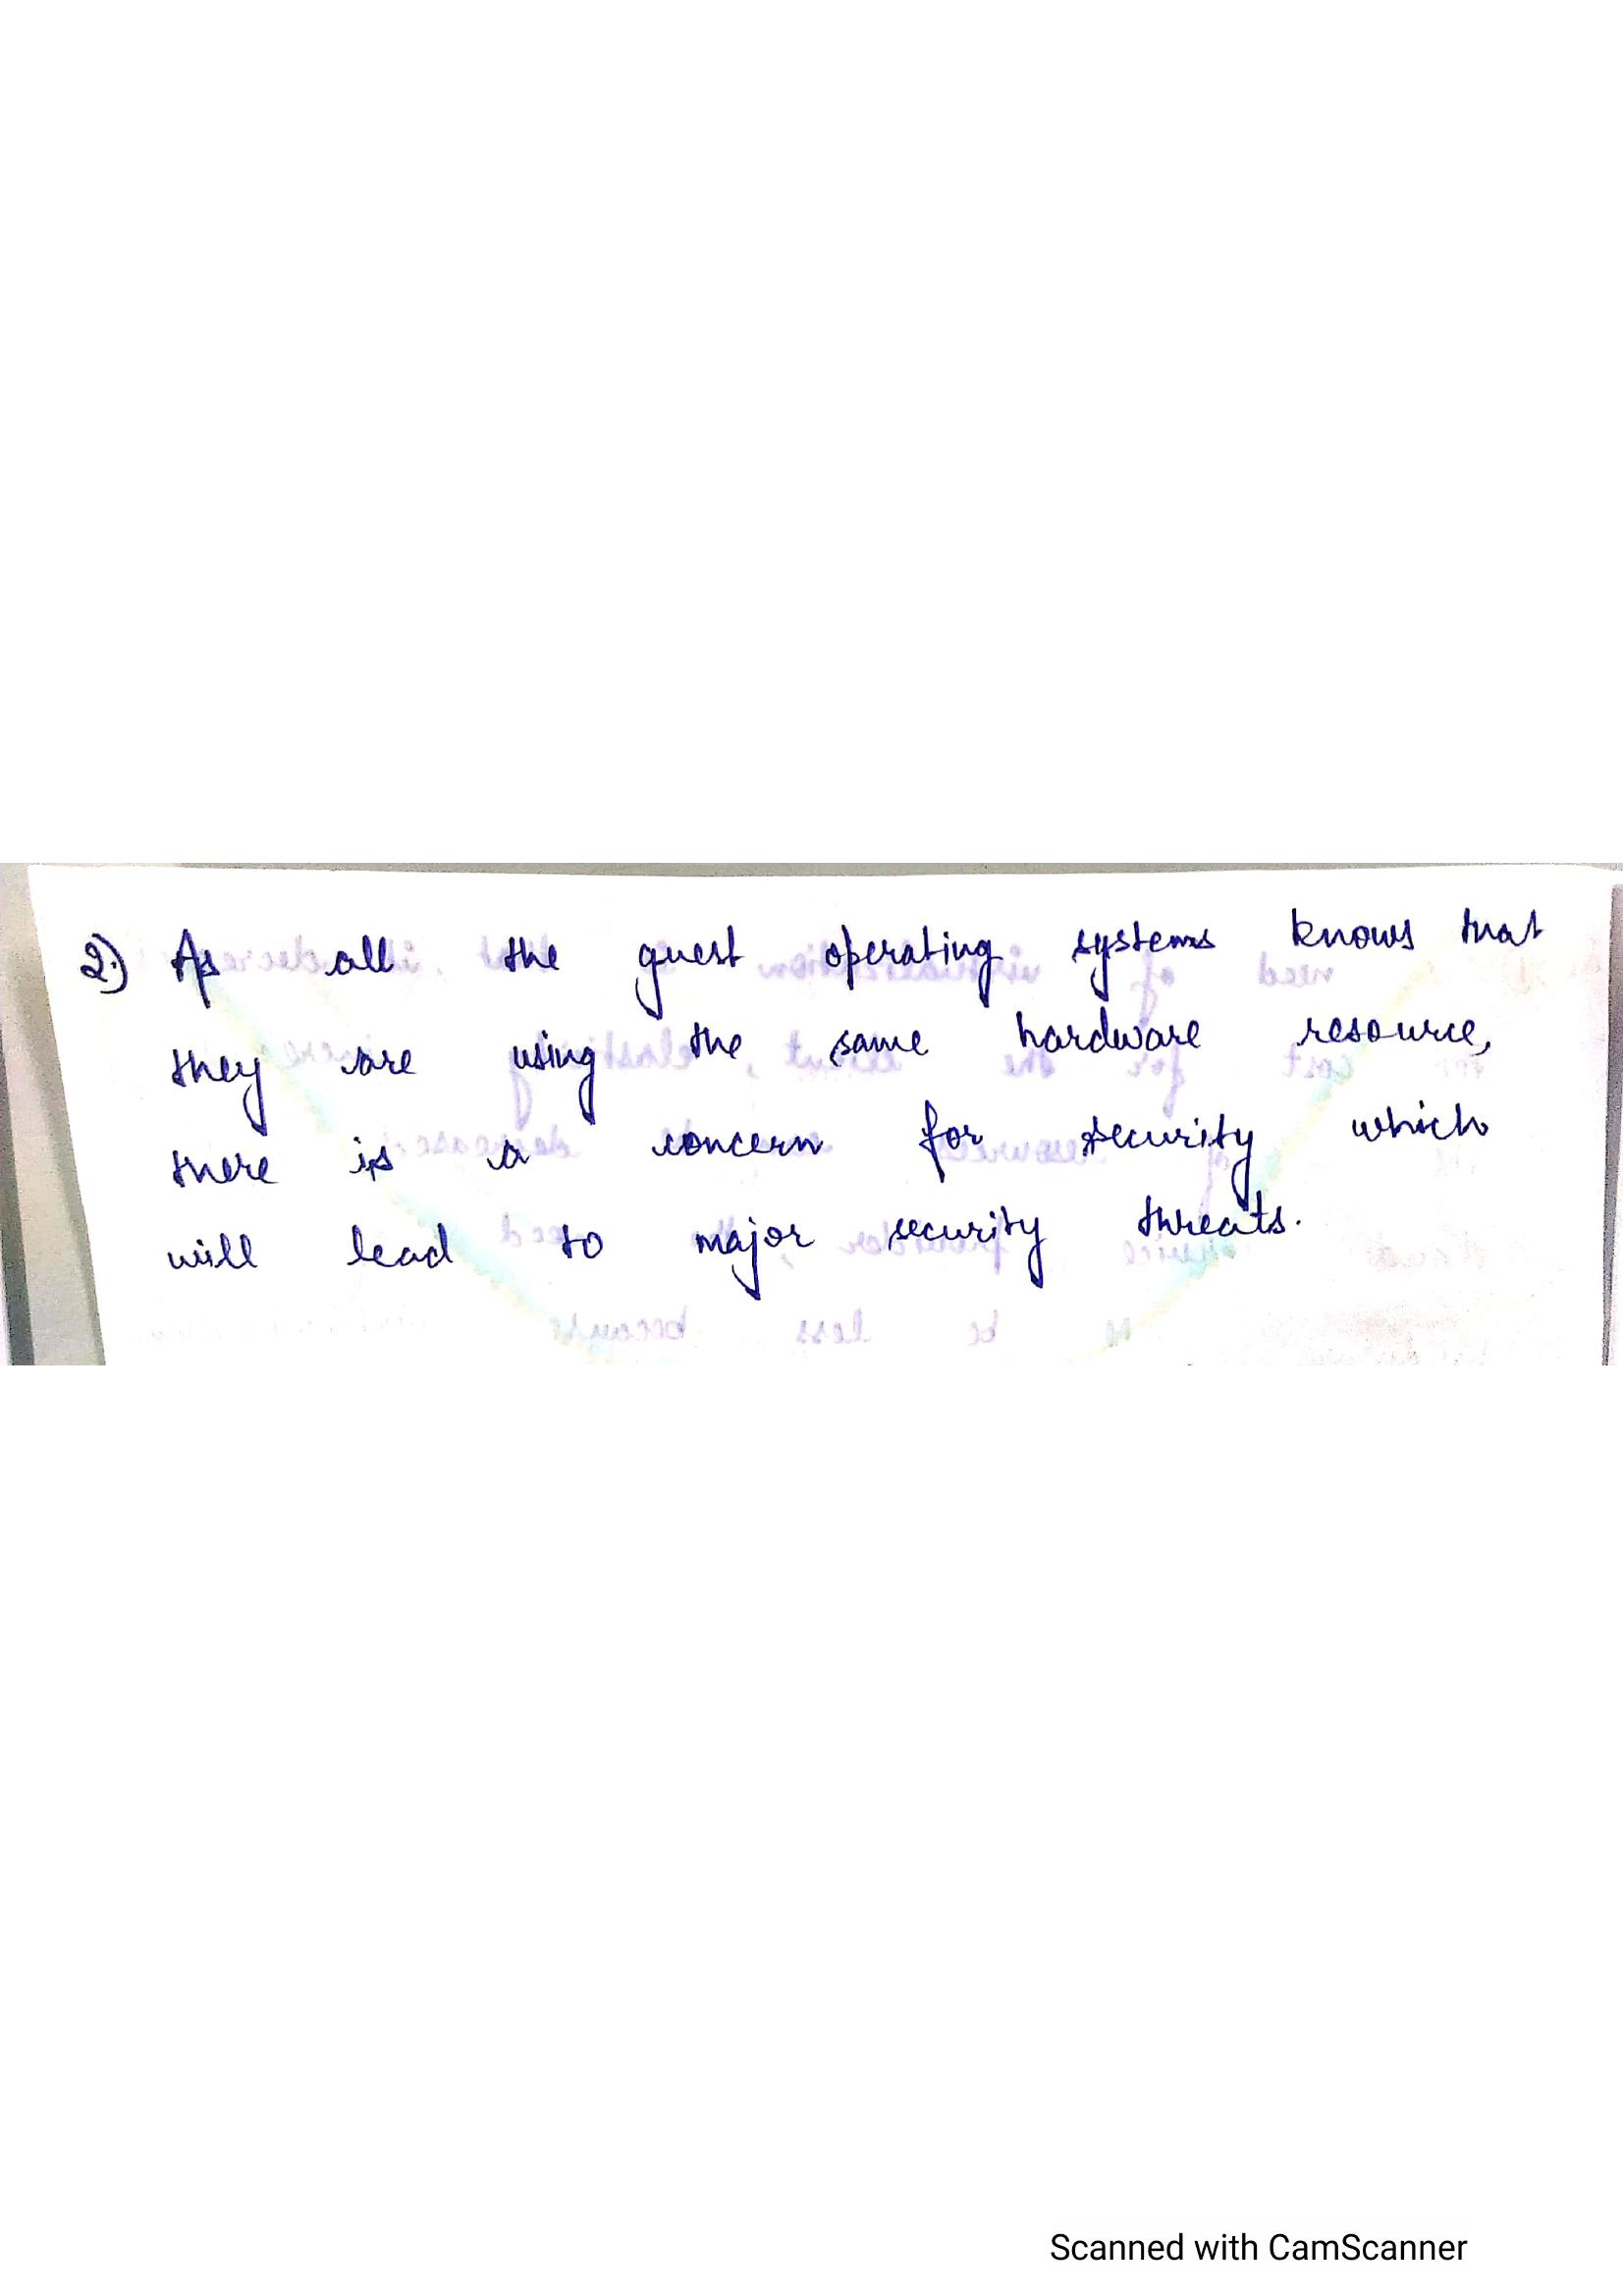 2.) As all the guest operating systems knows that
they are using the same hardware resource,
there is a concern for security which
will lead to major security threats.
Scanned with CamScanner